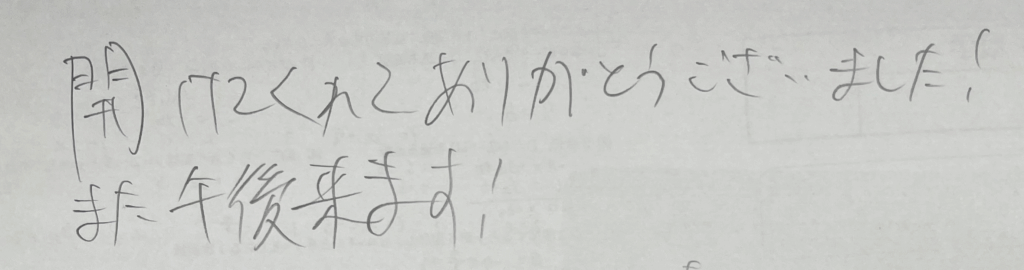 開けてくれてありがとうございました!
また午後来ます!